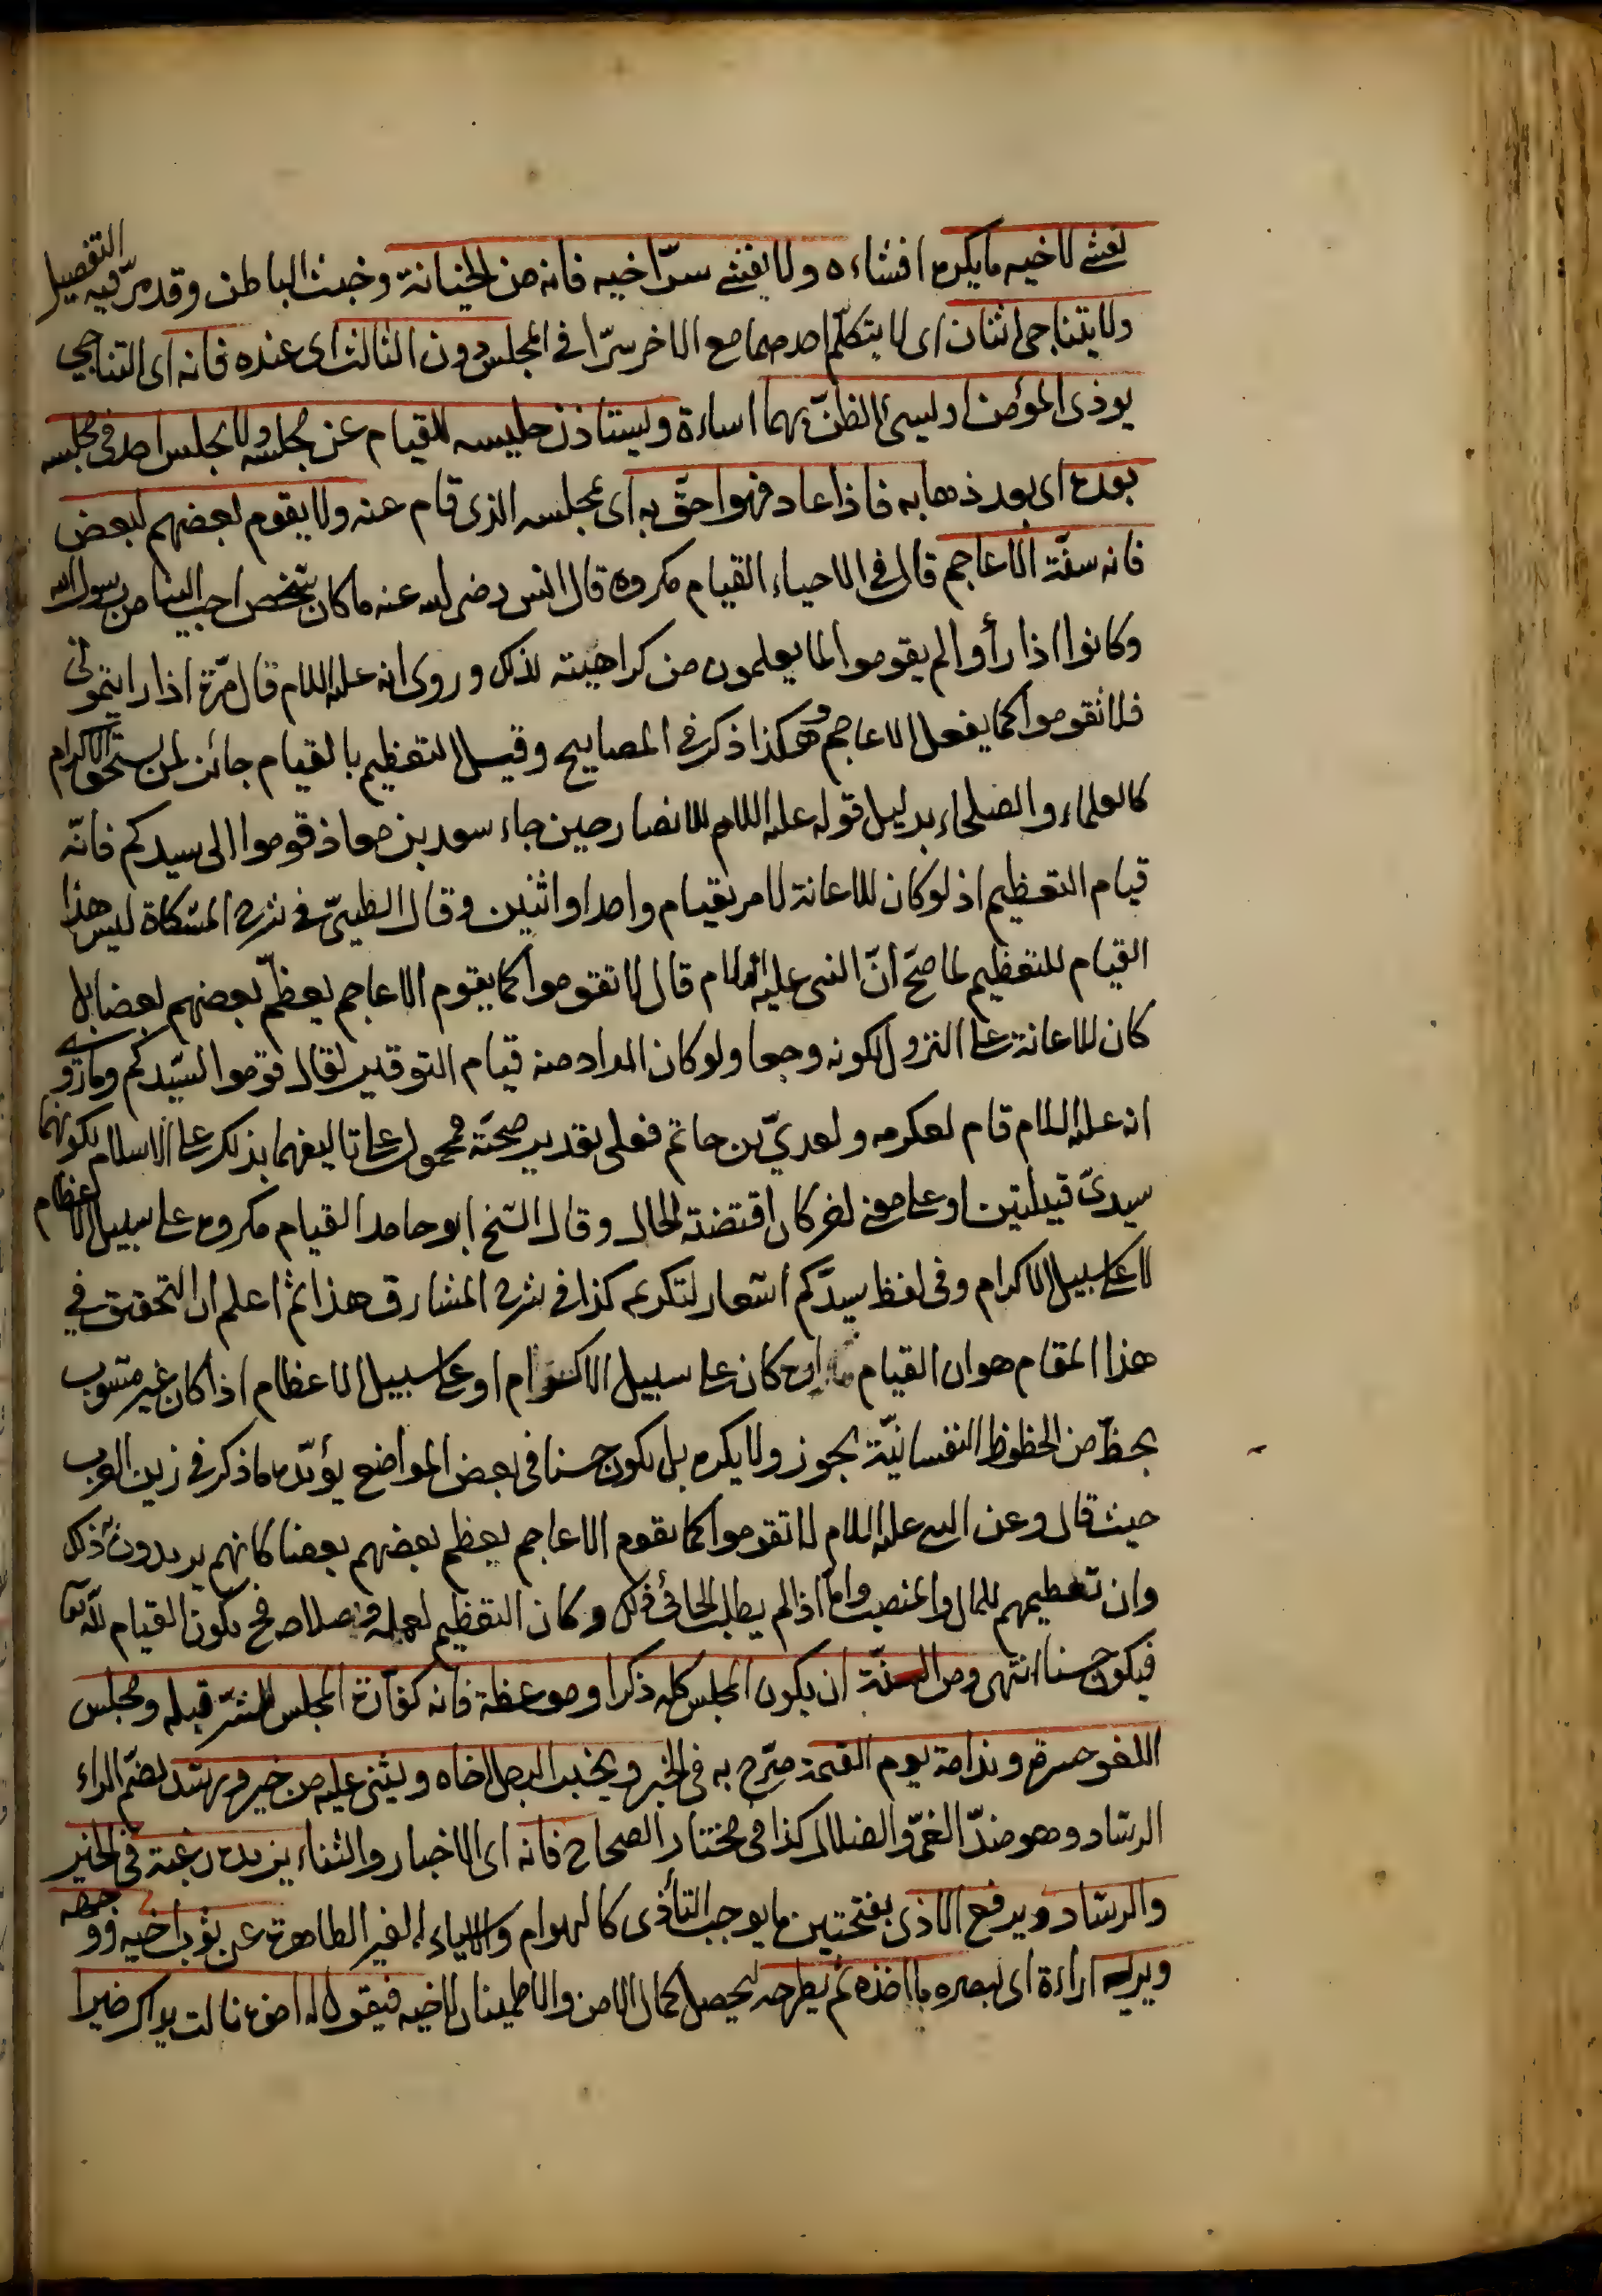 يفشى لاخيه مايكره افشاءه ولا يفشى سرّ اخيه فانه من الخيانة وخبث الباطن وقد مرّ فيه التفصيل
ولا يتناجى اثنان اى لا يتكلّم احدهما مع الاخر سرّا فى المجلس دون الثالث اى عنده فانه اى التناجى
يوذى المؤمن اذ ليسئ الظنّ بهما اساءة ويستاذن جليسه للقيام عن مجلسه ولا يجلس احد فى مجلسه
بعده اى بعد ذهابه فاذا عاد فهو احقّ به اى بمجلسه الذى قام عنه ولا يقوم بعضهم لبعض
فانه سنّة الاعاجم قال فى الاحياء القيام مكروه قال انس رضى الله عنه ماكان شخص احب الينا من رسول الله
وكانوا اذا رأوا لم يقوموا لما يعلمون من كراهيته لذلك وروى انه عليه السلام قال مرّة اذا رايتمونى
فلا تقوموا كما يفعل الاعاجم وهكذا ذكر فى المصابيح وقيل التعظيم بالقيام جائز لمن يستحق الاكرام
كالعلماء والصلحاء بدليل قوله عليه السلام للانصار حين جاء سعد بن معاذ قوموا الى سيدكم فانّه
قيام التعظيم اذ لوكان للاعانة لامر بقيام واحد او اثنين وقال الطيبىّ فى شرح المشكاة ليس هذا
القيام للتعظيم لما صحّ انّ النبى عليه السلام قال لا تقوموا كما يقوم الاعاجم يعظّم بعضهم بعضا بل
كان للاعانة على النزول لكونه وجعا ولوكان المراد منه قيام التوقير لقال قوموا لسيّدكم وما روى
انه عليه السلام قام لعكرمه ولعدىّ بن حاتم فعلى تقدير صحّته محمول على تاليفهما بذلك على الاسلام لكونهما
سيدىّ قبيلتين او على معنى اخر كان اقتضته الحال وقال الشيخ ابو حامد القيام مكروه على سبيل الاعظام
لا على سبيل الاكرام وفى لفظ سيدّكم اشعار لتكريمه كذا فى شرح المشارق هذا ثم اعلم ان التحقيق فى
هذا المقام هو ان القيام كان على سبيل الاكرام او على سبيل الاعظام اذا كان غير مشوب
بحظّ من الحظوظ النفسانيّة يجوز ولا يكره بل يكون حسنا فى بعض المواضع يؤيّده ما ذكر فى زين العرب
حيث قال وعن النبى عليه السلام لا تقوموا كما يقوم الاعاجم يعظم بعضهم بعضا كانهم يريدون ذلك
وان تعظيمهم للمال والمنصب واما اذا لم يطلب الجائى ذلك وكان التعظيم لعلمه وصلاحه فح يكون القيام لله تعا
فيكون حسنا انتهى ومن السنّة ان يكون المجلس كله ذكرا وموعظة فانه كفّارة المجلس للشرّ قبله ومجلس
اللغو حسرة وندامة يوم القيمة صرّح به فى الخبر ويخبر الرجل اخاه ويثنى عليه من خير ورشد بضم الراء
الرشاد وهو ضدّ الغىّ والضلال كذا فى مختار الصحاح فانه اى الاخبار والثناء يزيده رغبة فى الخير
والرشاد ويرفع الاذى بفتحتين ما يوجب التأذى كالهوام والاشياء الغير الطاهرة عن ثوب اخيه ووجهه
ويريه اراءة اى يبصره ما اخذه ثم يطرحه ليحصل كمال الامن والاطمينان لاخيه فيقول له اخوه نالت يداك خيرا